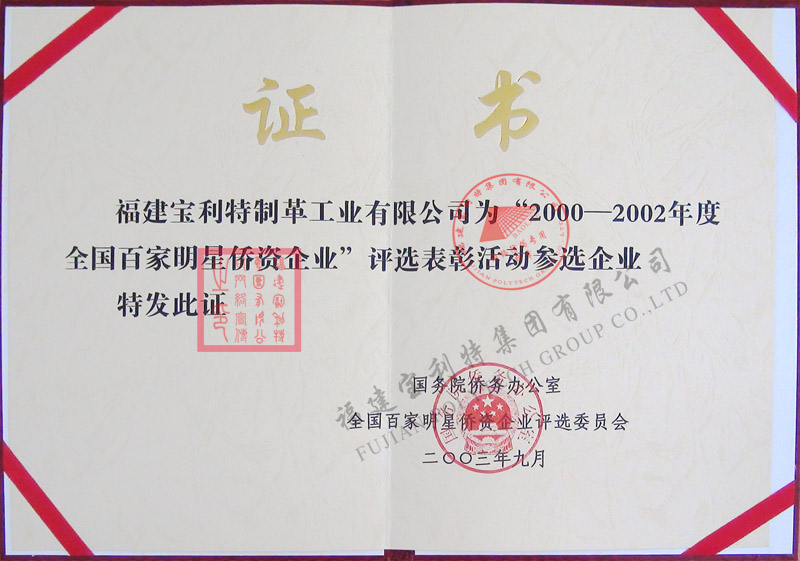 证书
福建宝利特制革工业有限公司为“2000—2002年度
全国百家明星侨资企业”评选表彰活动参选企业
特发此证
国务院侨务办公室
全国百家明星侨资企业评选委员会
二〇〇三年九月
福建宝利特集团有限公司
FUJIAN POLYTECH GROUP CO.,LTD